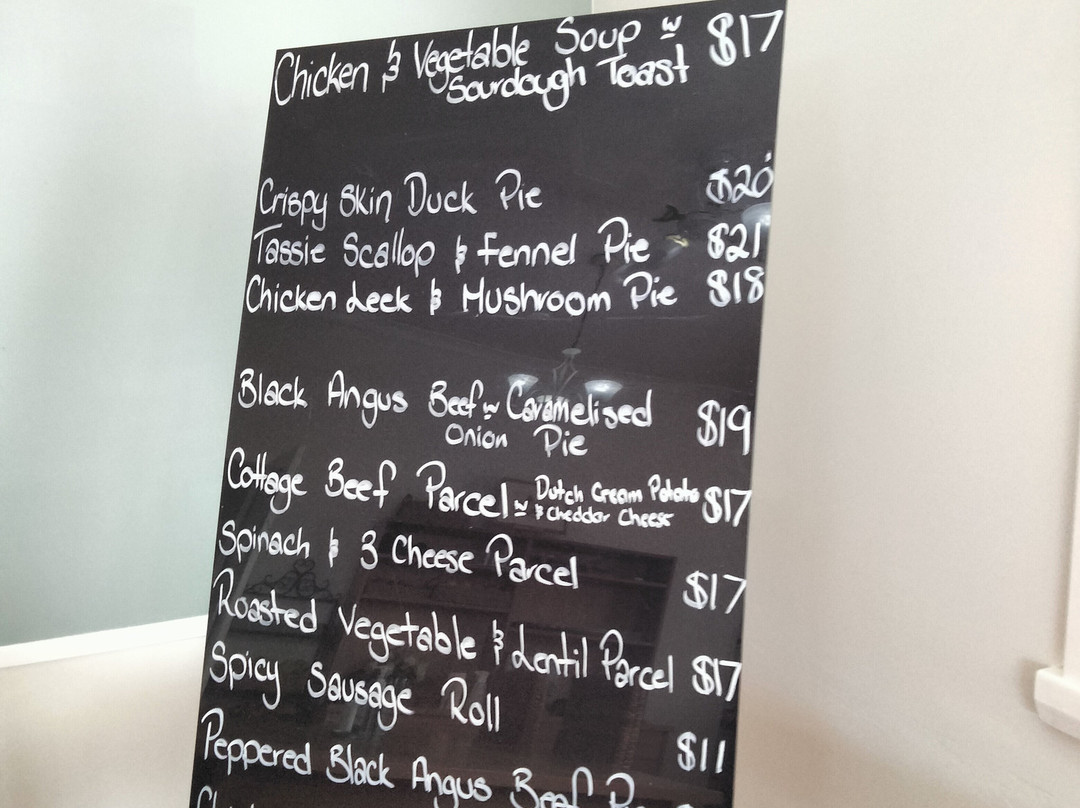 Chicken & Vegetable Soup w $17
Sourdough Toast
Crispy Skin Duck Pie $20
Tassie Scallop & Fennel Pie $21
Chicken Leek & Mushroom Pie $18
Black Angus Beef w Caramelised $19
Onion Pie
Cottage Beef Parcel w Dutch Cream Potato $17
& Cheddar Cheese
Spinach & 3 Cheese Parcel $17
Roasted Vegetable & Lentil Parcel $17
Spicy Sausage Roll $11
Peppered Black Angus Beef